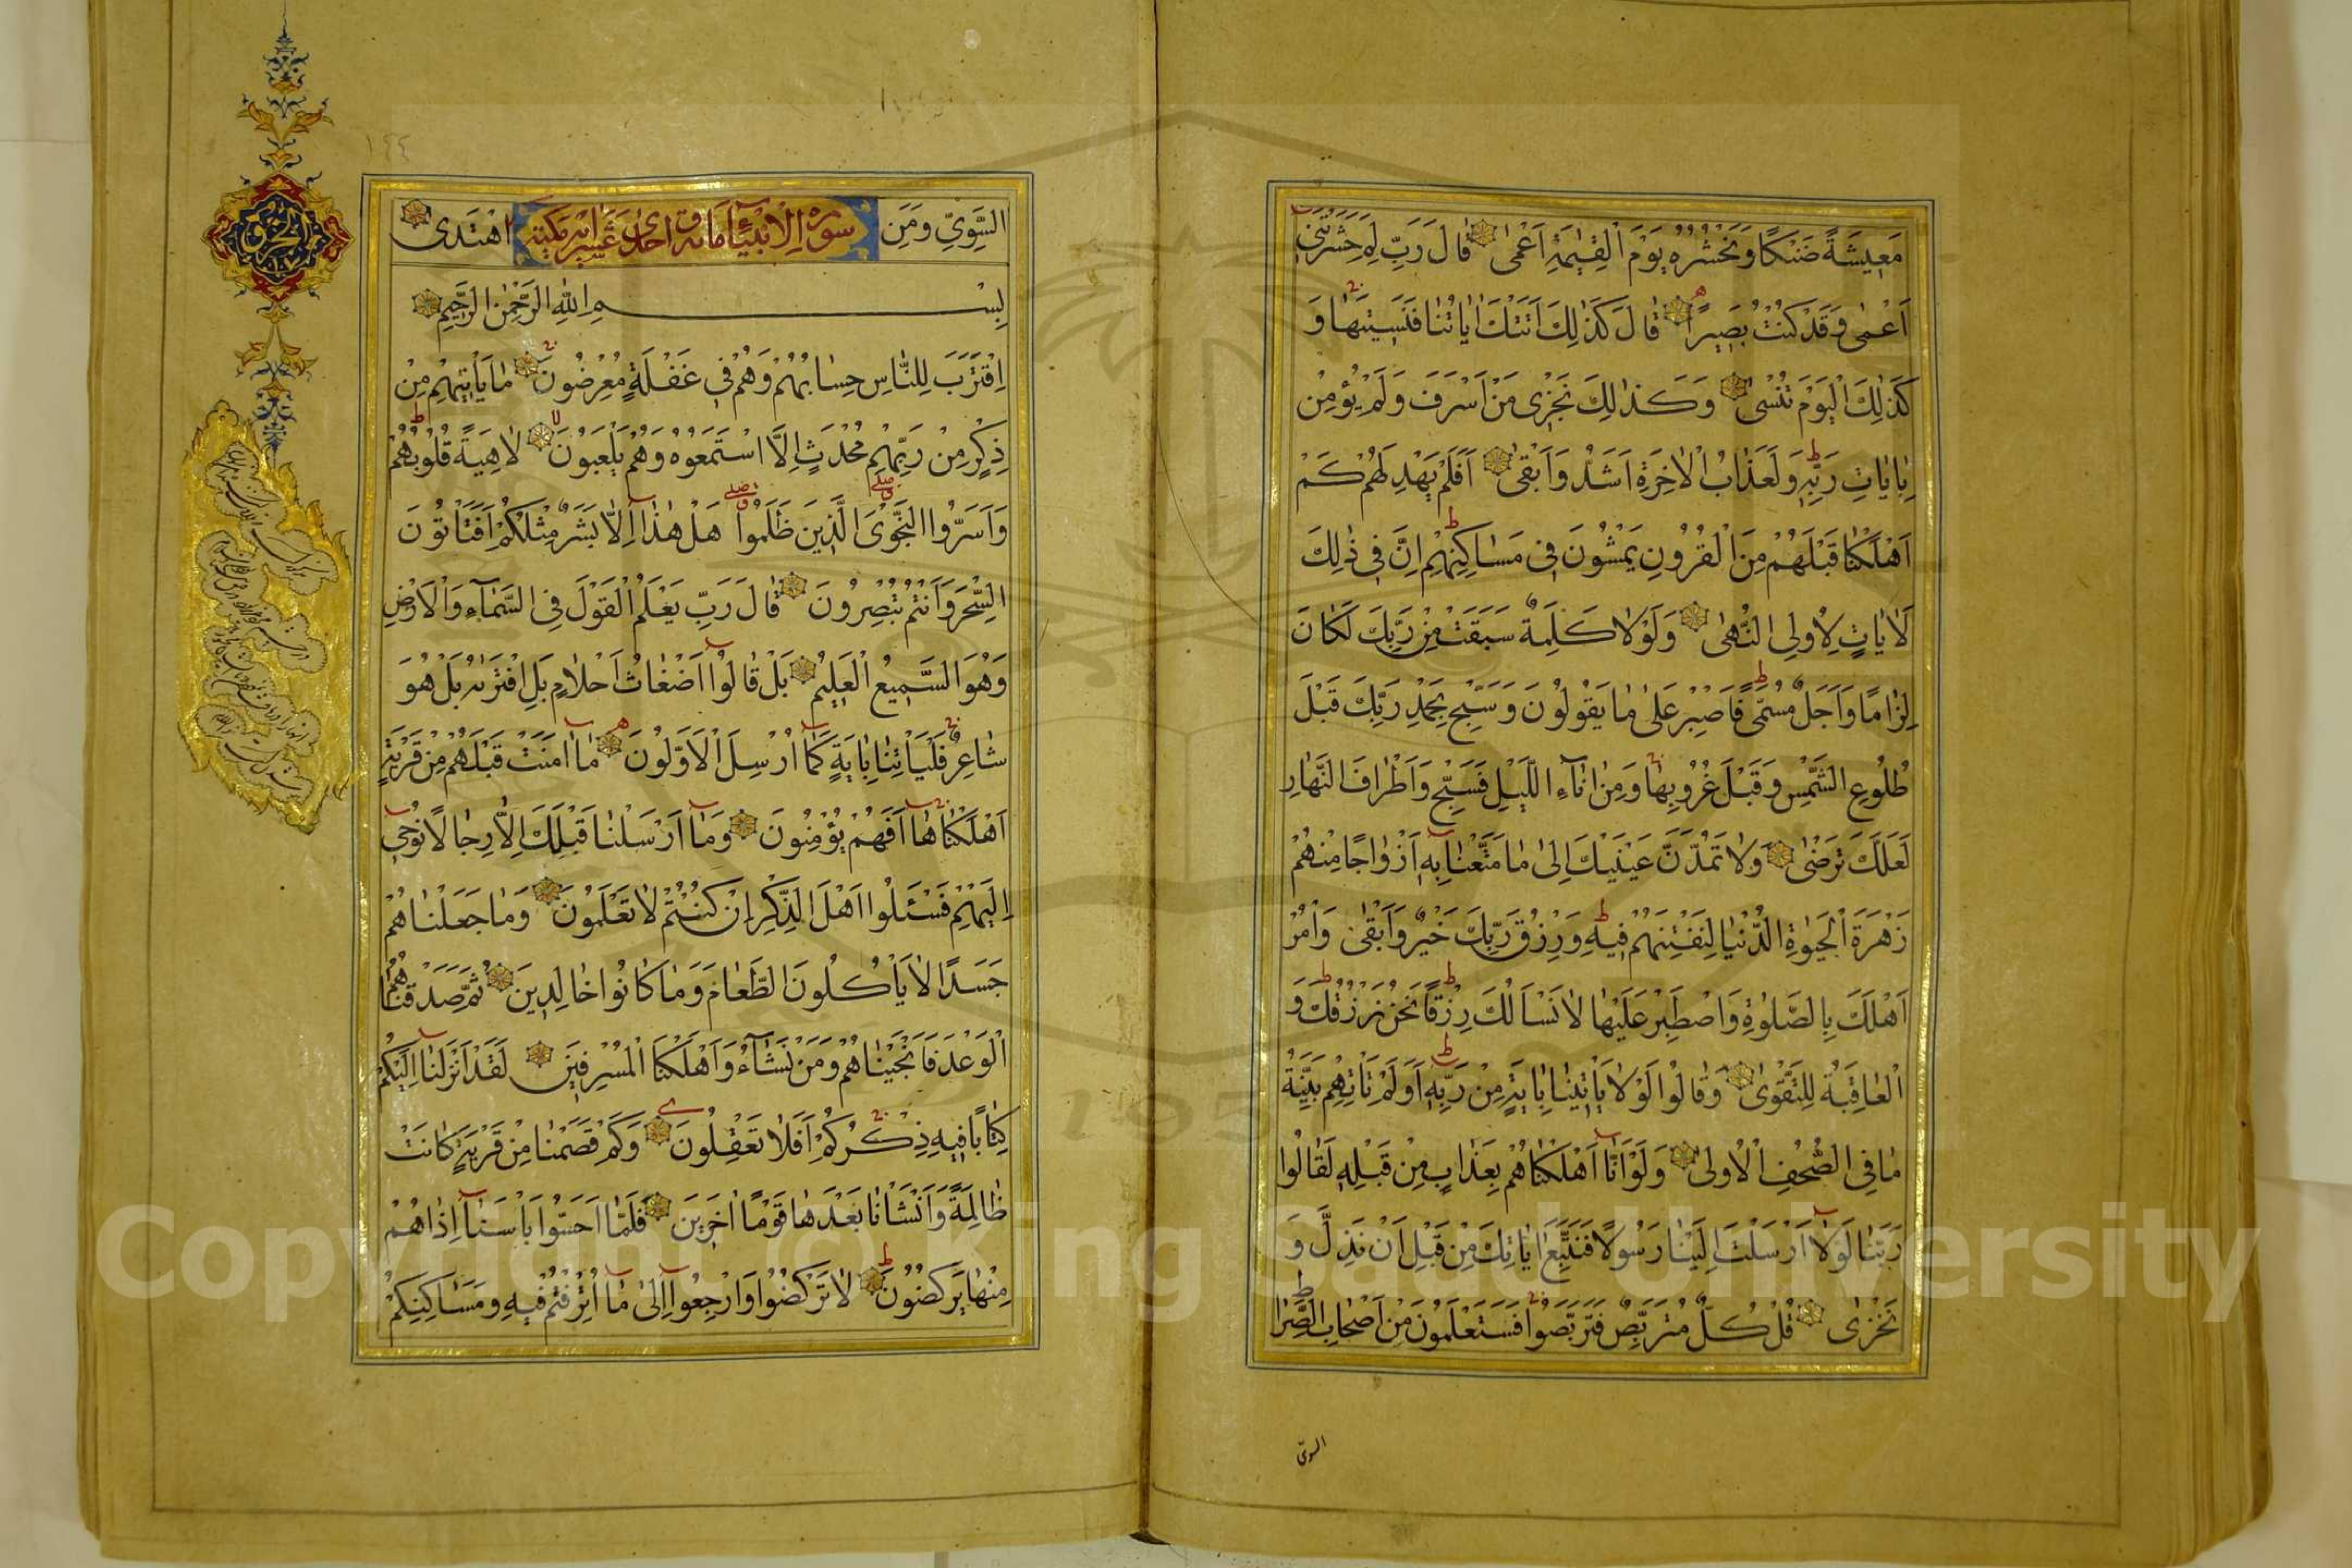 مَعِيشَةً ضَنْكًا وَنَحْشُرُهُ يَوْمَ الْقِيٰمَةِ اَعْمٰى قَالَ رَبِّ لِمَ حَشَرْتَنِى
اَعْمٰى وَقَدْ كُنْتُ بَصِيرًا قَالَ كَذٰلِكَ اَتَتْكَ اٰيَاتُنَا فَنَسِيتَهَا وَ
كَذٰلِكَ الْيَوْمَ تُنْسٰى وَكَذٰلِكَ نَجْزِى مَنْ اَسْرَفَ وَلَمْ يُؤْمِنْ
بِاٰيَاتِ رَبِّهِ وَلَعَذَابُ الْاٰخِرَةِ اَشَدُّ وَاَبْقٰى اَفَلَمْ يَهْدِ لَهُمْ كَمْ
اَهْلَكْنَا قَبْلَهُمْ مِنَ الْقُرُونِ يَمْشُونَ فِى مَسَاكِنِهِمْ اِنَّ فِى ذٰلِكَ
لَاٰيَاتٍ لِاُولِى النُّهٰى وَلَوْلَا كَلِمَةٌ سَبَقَتْ مِنْ رَبِّكَ لَكَانَ
لِزَامًا وَاَجَلٌ مُسَمًّى فَاصْبِرْ عَلٰى مَا يَقُولُونَ وَسَبِّحْ بِحَمْدِ رَبِّكَ قَبْلَ
طُلُوعِ الشَّمْسِ وَقَبْلَ غُرُوبِهَا وَمِنْ اٰنَآءِ الَّيْلِ فَسَبِّحْ وَاَطْرَافَ النَّهَارِ
لَعَلَّكَ تَرْضٰى وَلَا تَمُدَّنَّ عَيْنَيْكَ اِلٰى مَا مَتَّعْنَا بِهِ اَزْوَاجًا مِنْهُمْ
زَهْرَةَ الْحَيٰوةِ الدُّنْيَا لِنَفْتِنَهُمْ فِيهِ وَرِزْقُ رَبِّكَ خَيْرٌ وَاَبْقٰى وَاْمُرْ
اَهْلَكَ بِالصَّلٰوةِ وَاصْطَبِرْ عَلَيْهَا لَا نَسْاَلُكَ رِزْقًا نَحْنُ نَرْزُقُكَ وَ
الْعَاقِبَةُ لِلتَّقْوٰى وَقَالُوا لَوْلَا يَاْتِينَا بِاٰيَةٍ مِنْ رَبِّهِ اَوَلَمْ تَاْتِهِمْ بَيِّنَةُ
مَا فِى الصُّحُفِ الْاُولٰى وَلَوْ اَنَّآ اَهْلَكْنَاهُمْ بِعَذَابٍ مِنْ قَبْلِهِ لَقَالُوا
رَبَّنَا لَوْلَآ اَرْسَلْتَ اِلَيْنَا رَسُولًا فَنَتَّبِعَ اٰيَاتِكَ مِنْ قَبْلِ اَنْ نَذِلَّ وَ
نَخْزٰى قُلْ كُلٌّ مُتَرَبِّصٌ فَتَرَبَّصُوا فَسَتَعْلَمُونَ مَنْ اَصْحَابُ الصِّرَا
السوىّ
السَّوِيِّ وَمَنِ اهْتَدٰى
سورة الانبيآء مائة واحدى عشر اية مكية
بِسْمِ اللّٰهِ الرَّحْمٰنِ الرَّحِيمِ
اِقْتَرَبَ لِلنَّاسِ حِسَابُهُمْ وَهُمْ فِى غَفْلَةٍ مُعْرِضُونَ مَا يَاْتِيهِمْ مِنْ
ذِكْرٍ مِنْ رَبِّهِمْ مُحْدَثٍ اِلَّا اسْتَمَعُوهُ وَهُمْ يَلْعَبُونَ لَاهِيَةً قُلُوبُهُمْ
وَاَسَرُّوا النَّجْوَى الَّذِينَ ظَلَمُوا هَلْ هٰذَآ اِلَّا بَشَرٌ مِثْلُكُمْ اَفَتَاْتُونَ
السِّحْرَ وَاَنْتُمْ تُبْصِرُونَ قَالَ رَبِّى يَعْلَمُ الْقَوْلَ فِى السَّمَآءِ وَالْاَرْضِ
وَهُوَ السَّمِيعُ الْعَلِيمُ بَلْ قَالُوٓا اَضْغَاثُ اَحْلَامٍ بَلِ افْتَرٰىهُ بَلْ هُوَ
شَاعِرٌ فَلْيَاْتِنَا بِاٰيَةٍ كَمَآ اُرْسِلَ الْاَوَّلُونَ مَآ اٰمَنَتْ قَبْلَهُمْ مِنْ قَرْيَةٍ
اَهْلَكْنَاهَآ اَفَهُمْ يُؤْمِنُونَ وَمَآ اَرْسَلْنَا قَبْلَكَ اِلَّا رِجَالًا نُوحِىٓ
اِلَيْهِمْ فَسْئَلُوا اَهْلَ الذِّكْرِ اِنْ كُنْتُمْ لَا تَعْلَمُونَ وَمَا جَعَلْنَاهُمْ
جَسَدًا لَا يَاْكُلُونَ الطَّعَامَ وَمَا كَانُوا خَالِدِينَ ثُمَّ صَدَقْنَاهُمُ
الْوَعْدَ فَاَنْجَيْنَاهُمْ وَمَنْ نَشَآءُ وَاَهْلَكْنَا الْمُسْرِفِينَ لَقَدْ اَنْزَلْنَآ اِلَيْكُمْ
كِتَابًا فِيهِ ذِكْرُكُمْ اَفَلَا تَعْقِلُونَ وَكَمْ قَصَمْنَا مِنْ قَرْيَةٍ كَانَتْ
ظَالِمَةً وَاَنْشَاْنَا بَعْدَهَا قَوْمًا اٰخَرِينَ فَلَمَّآ اَحَسُّوا بَاْسَنَآ اِذَا هُمْ
مِنْهَا يَرْكُضُونَ لَا تَرْكُضُوا وَارْجِعُوٓا اِلٰى مَآ اُتْرِفْتُمْ فِيهِ وَمَسَاكِنِكُمْ
١٤٤
Copyright © King Saud University
195